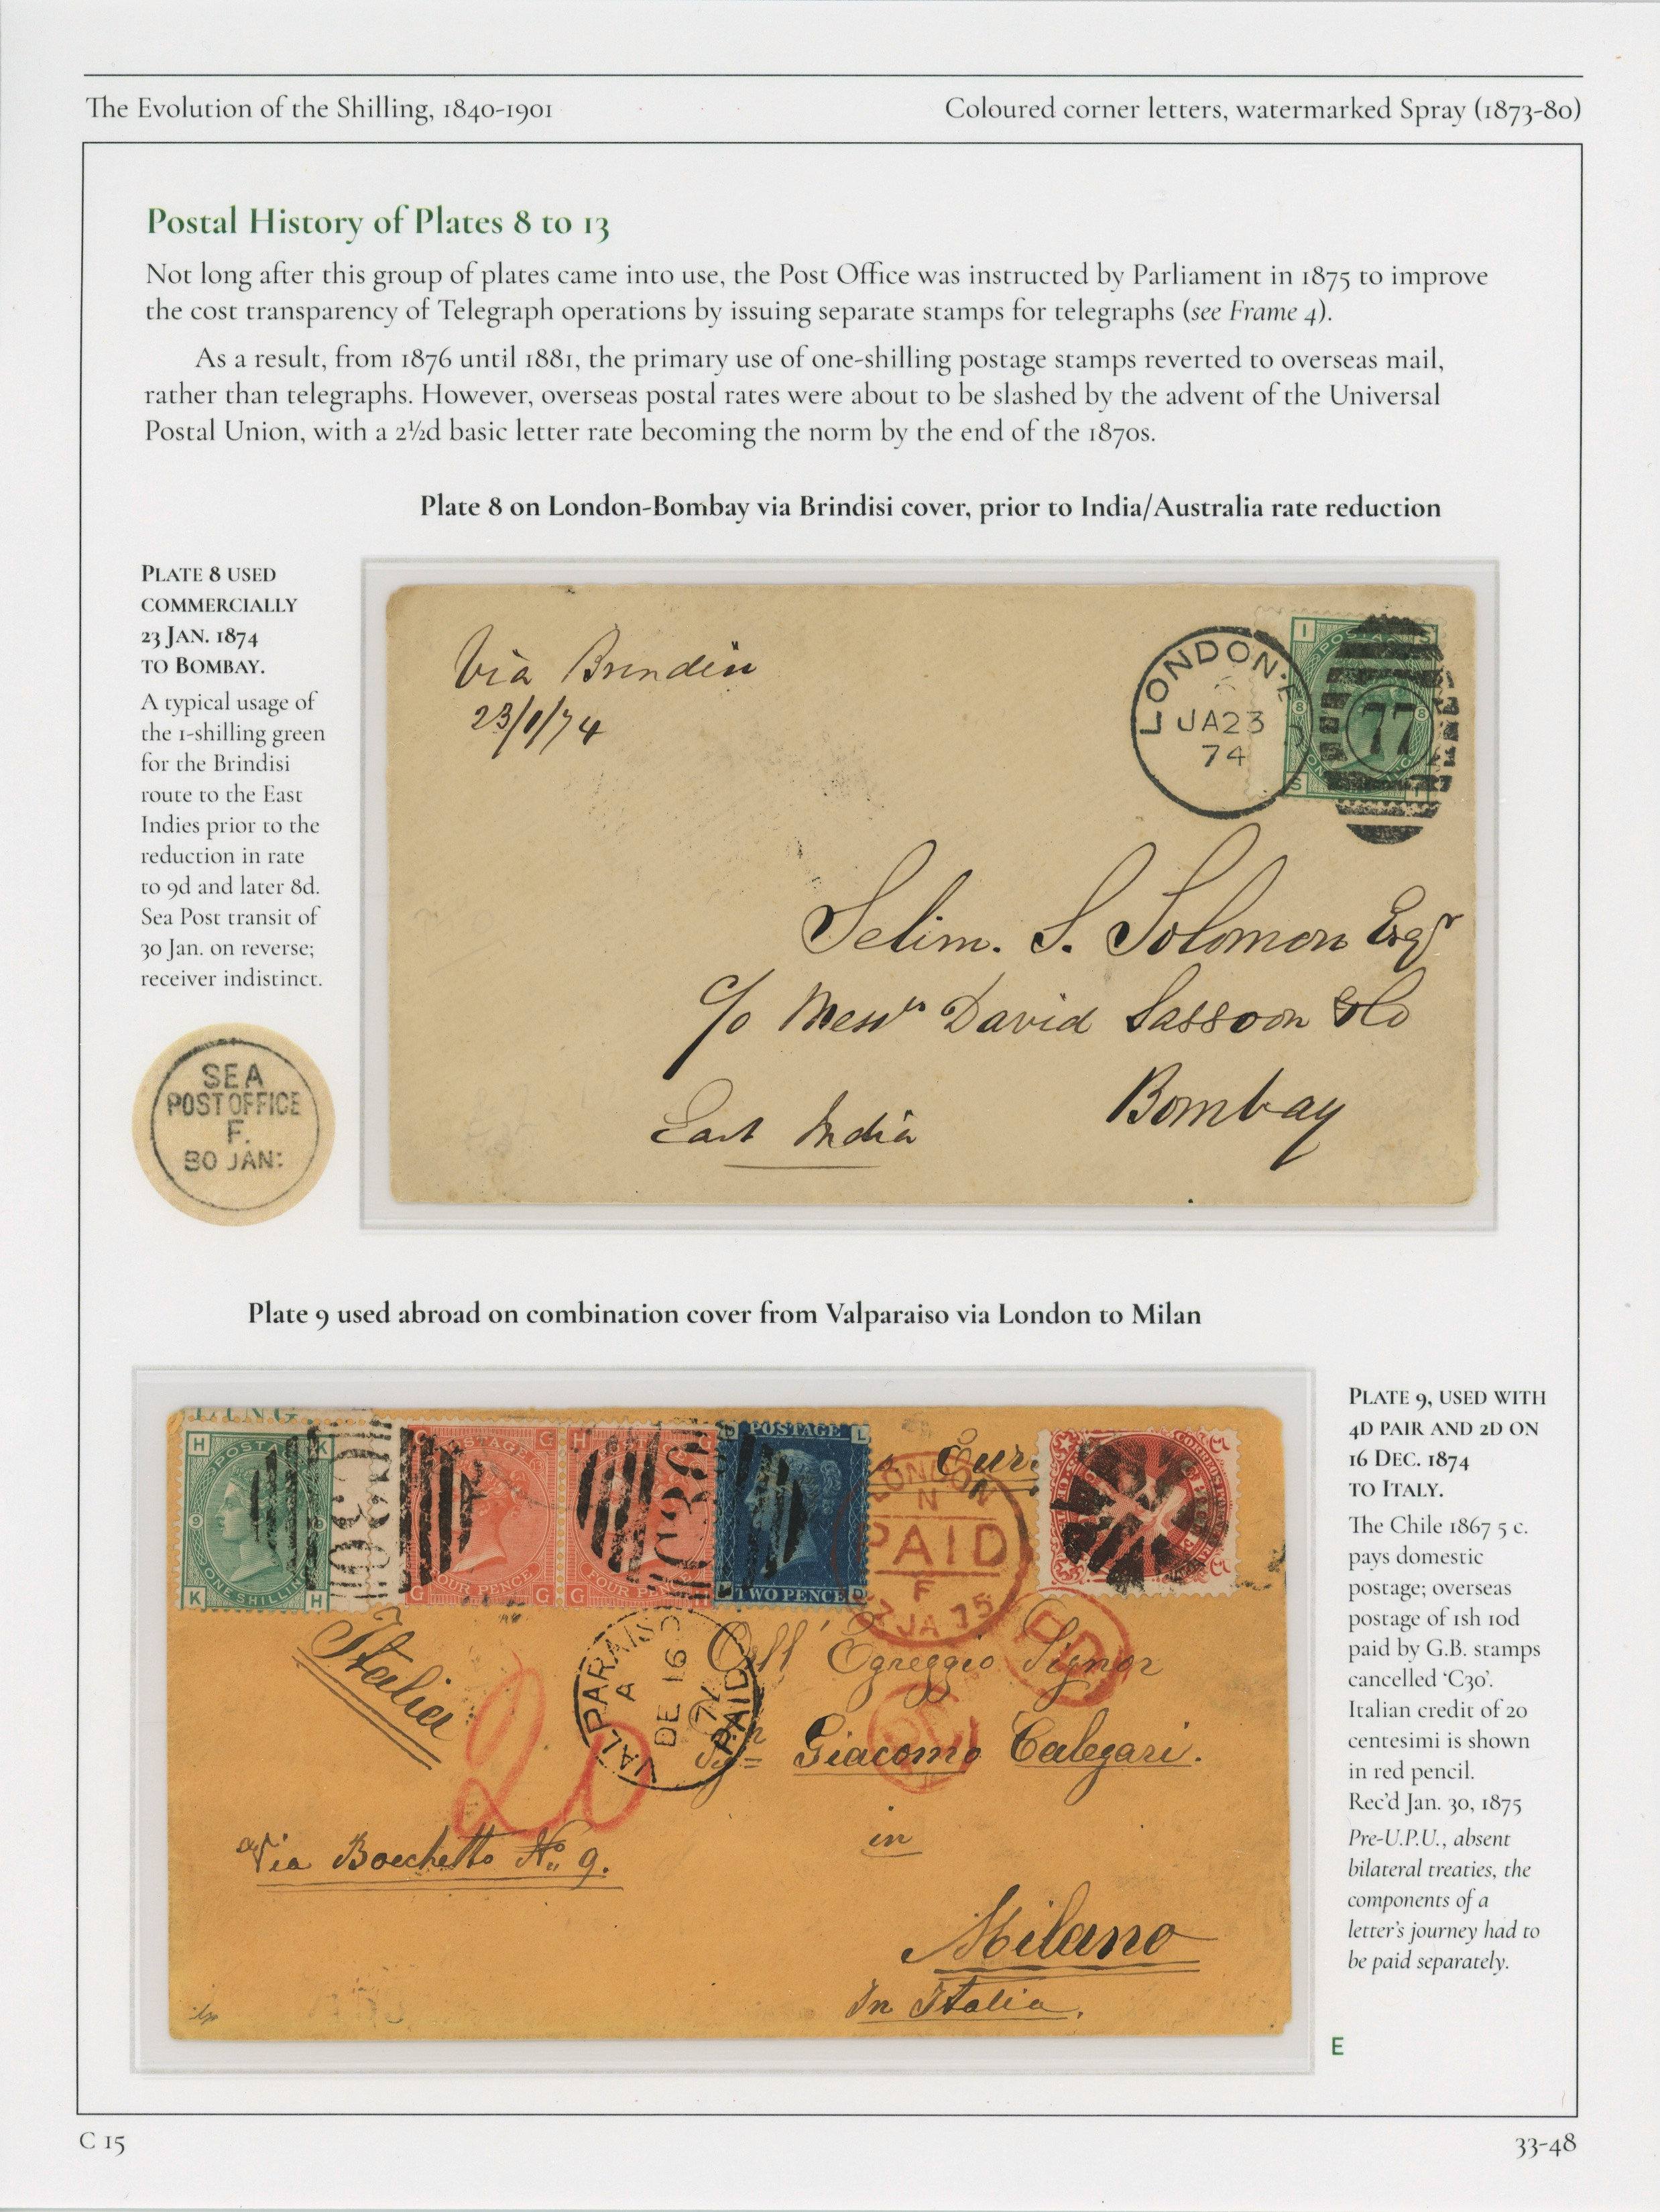 The Evolution of the Shilling, 1840-1901
Coloured corner letters, watermarked Spray (1873-80)
Postal History of Plates 8 to 13
Not long after this group of plates came into use, the Post Office was instructed by Parliament in 1875 to improve
the cost transparency of Telegraph operations by issuing separate stamps for telegraphs (see Frame 4).
As a result, from 1876 until 1881, the primary use of one-shilling postage stamps reverted to overseas mail,
rather than telegraphs. However, overseas postal rates were about to be slashed by the advent of the Universal
Postal Union, with a 2½d basic letter rate becoming the norm by the end of the 1870s.
Plate 8 on London-Bombay via Brindisi cover, prior to India/Australia rate reduction
PLATE 8 USED
COMMERCIALLY
23 JAN. 1874
TO BOMBAY.
A typical usage of
the 1-shilling green
for the Brindisi
route to the East
Indies prior to the
reduction in rate
to 9d and later 8d.
Sea Post transit of
30 Jan. on reverse;
receiver indistinct.
SEA
POST OFFICE
F.
30 JAN:
Via Brindisi
23/1/74
LONDON·E
JA23
74
I
8
8
S
77
Selim. S. Solomon Esqr
c/o Messrs David Sassoon & Co
Bombay
East India
Plate 9 used abroad on combination cover from Valparaiso via London to Milan
LING.
H
K
POSTA
9
ONE SHILLIN
K
H
C30
G
FOUR PENCE
G
G
H
FOUR PENCE
G
C30
POSTAGE
L
TWO PENCE
LONDON
N
PAID
F
JA 75
PD
Italia
VALPARAISO
A
DE 16
74
PAID
20
All' Egreggio Signor
Giacomo Calegari.
Via Bocchetto No. 9.
in
Milano
In Italia.
PLATE 9, USED WITH
4D PAIR AND 2D ON
16 DEC. 1874
TO ITALY.
The Chile 1867 5 c.
pays domestic
postage; overseas
postage of 1sh 10d
paid by G.B. stamps
cancelled ‘C30’.
Italian credit of 20
centesimi is shown
in red pencil.
Rec'd Jan. 30, 1875
Pre-U.P.U., absent
bilateral treaties, the
components of a
letter's journey had to
be paid separately.
E
C 15
33-48